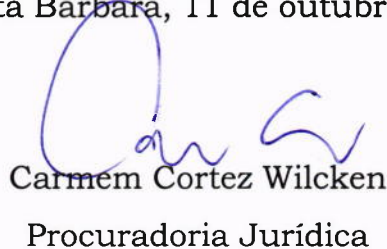 ta Bárbara, 11 de outubr
Carmem Cortez Wilcken
Procuradoria Jurídica